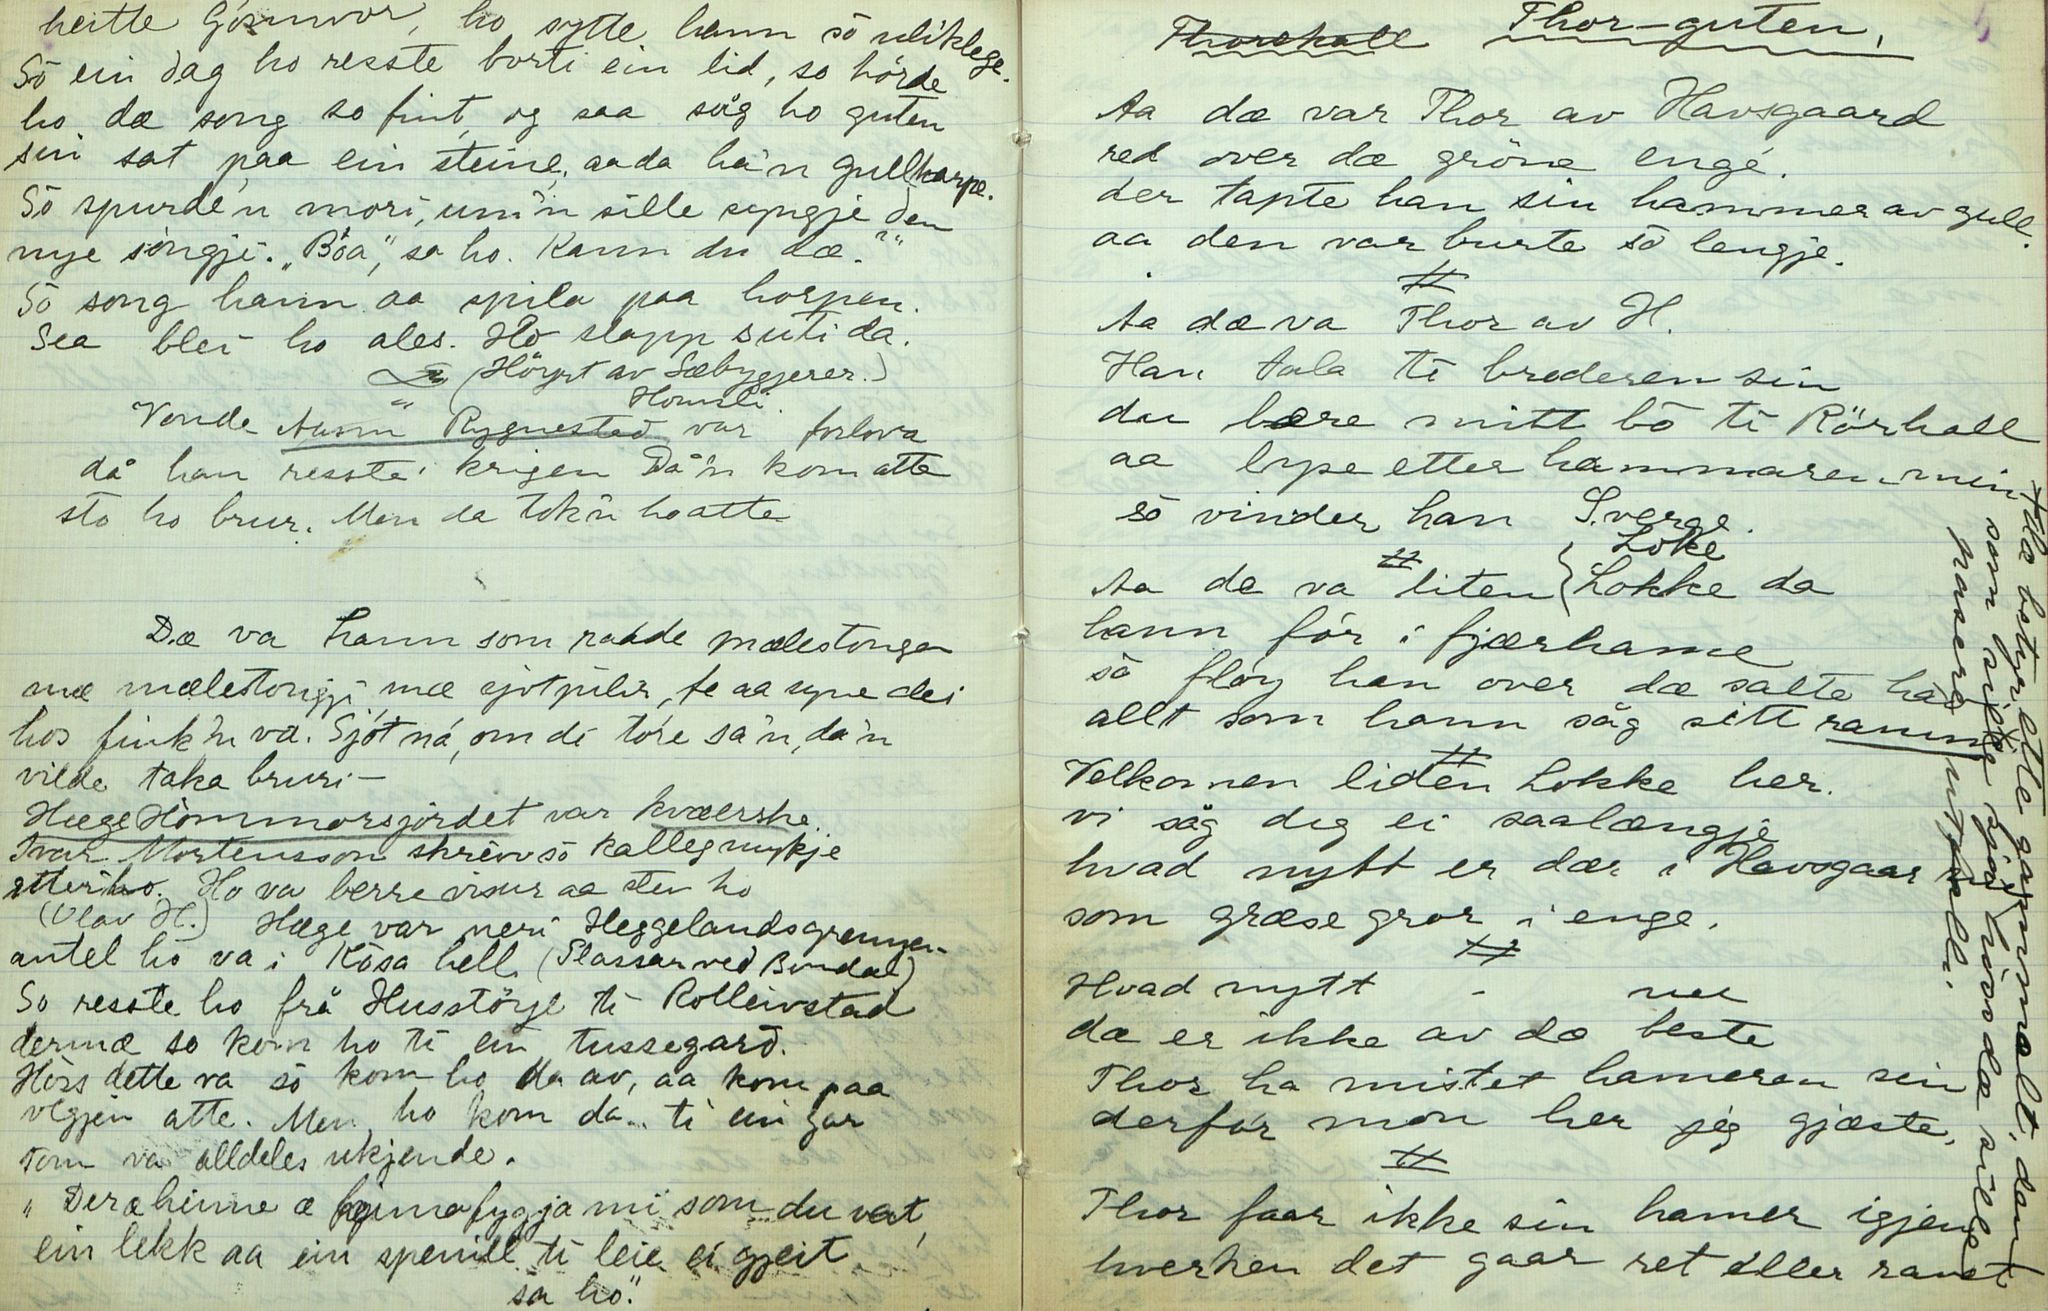 heitte Gösmvor, ho sytte hann sö uliklege.
Sö ein dag ho resste borti ein lid, so hörde
ho dæ song so fint, og saa såg ho guten
sin sat paa ein steine, aa da ha'n gullharpe.
Sö spurde'n mori, um'n sille syngje den
nye songje. "Båa", sa ho. "Kann du dæ."
Sö song hann aa spila paa horpen.
Sea blei ho ales. Ho slapp suti da.
(Höyrt av Sæbyggjerer.)
Homsli
Vonde Aasm " Rygnestad var forlova
då han resste i krigen Då'n kom atte
sto ho brur. Men da tok'n ho atte
Dæ va hann som raade mælestongen
mæ mælestongji, mæ sjotpilir, te aa syne dei
hos fink'n va. Sjot ná, om di tore sa'n, da'n
vilde taka bruri —
Hæge Hommorsjordet var kværshe.
Ivar Mortensson skreiv sö kalleg mykje
etter ho. Ho va berre visur aa stev ho
(Olav H.) Hæge var neri Heggelandsgrennen
antel ho va i Kåsa hell. (Plassar ved Bundal)
So resste ho frå Husstöyl ti Rolleivstad
dermæ so kom ho ti ein tussegard.
Höss dette va sö kom ho da av, aa kom paa
vegjen atte. Men ho kom da .. ti ein gar
som va alldeles ukjende.
"Deræ hinne æ hognafygja mi som du vat,
ein lekk aa ein spenill ti leie ei gjeit
sa ho."
Thorekall Thor-guten.
Aa dæ var Thor av Havsgaard
red over dæ gröne enge.
der tapte han sin hammer av gull.
aa den var burte sö lengje.
#
Aa dæ va Thor av H.
Han tala ti broderen sin
du bære mitt bö ti Rörhall
aa lype etter hammaren min
sö vinder han Sverge.
#
Loke
Aa de va liten { Lokke da
hann för i fjærhame
så flöy han over dæ salte hav
allt som hann såg sitt ramm
#
Velkomen liden Lokke her.
vi såg deg ei saalængje
hvad nytt er dær i Havsgaar
som græse gror i enge.
#
Hvad nytt - nee
dæ er ikke av dæ beste
Thor ha mistet hameren sin
derfor mon her jeg gjæste.
#
Thor faar ikke sin hamer igjen
hverken det gaar ret eller ranet
+ dæ betyr ette gammalt, dant
som sille sjåa hissdæ sille
passera